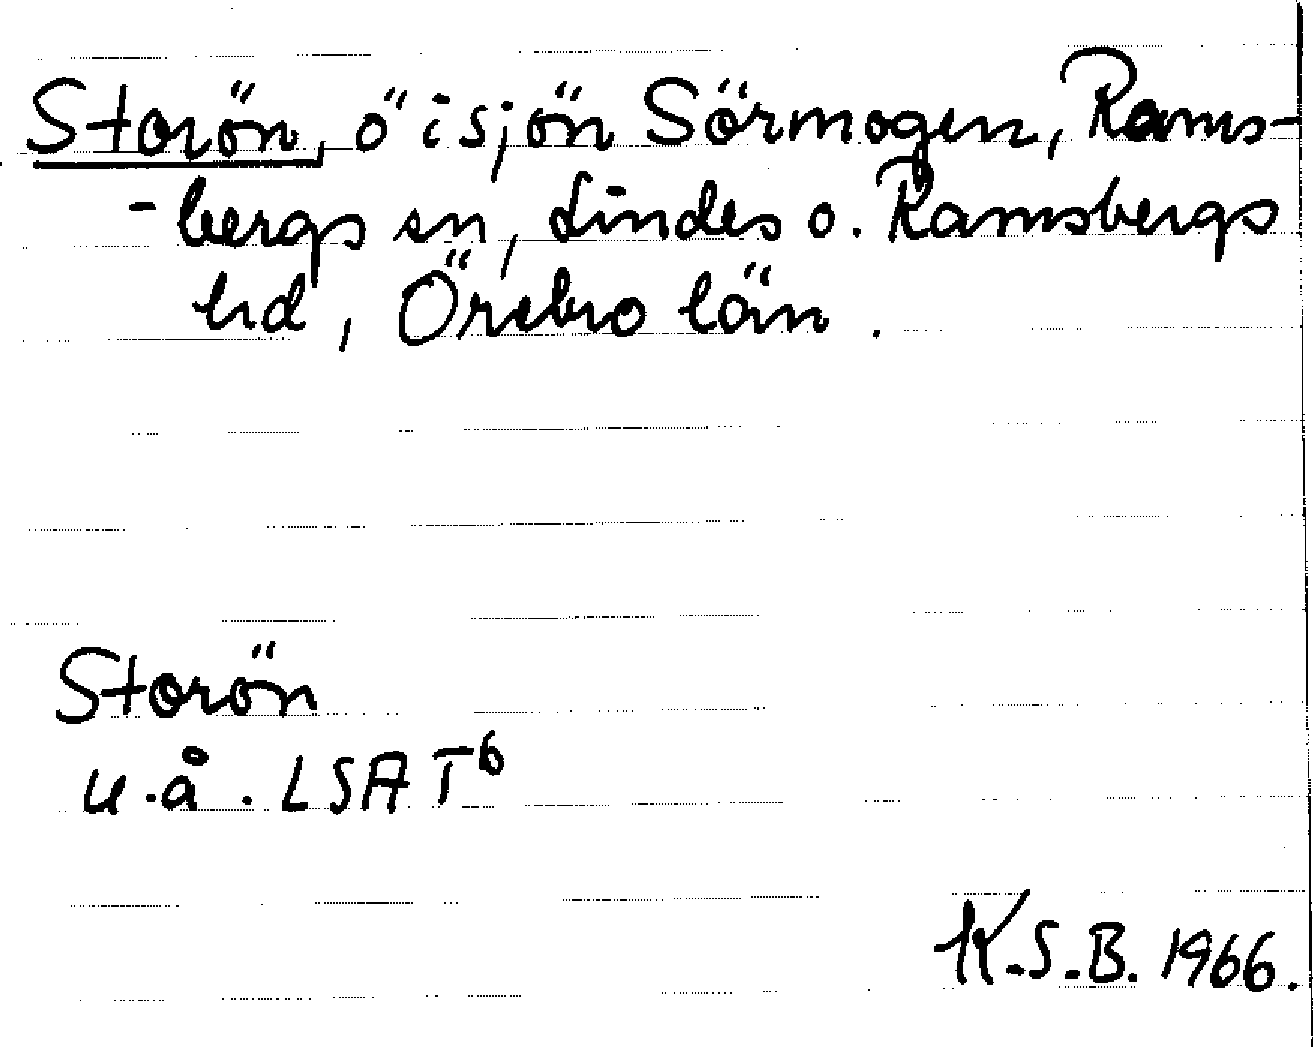 Storön, ö i sjön Sörmogen, Rams-
-bergs sn, Lindes o. Ramsbergs
hd, Örebro län.
Storön
u.å. LSA T6
K.S.B. 1966.